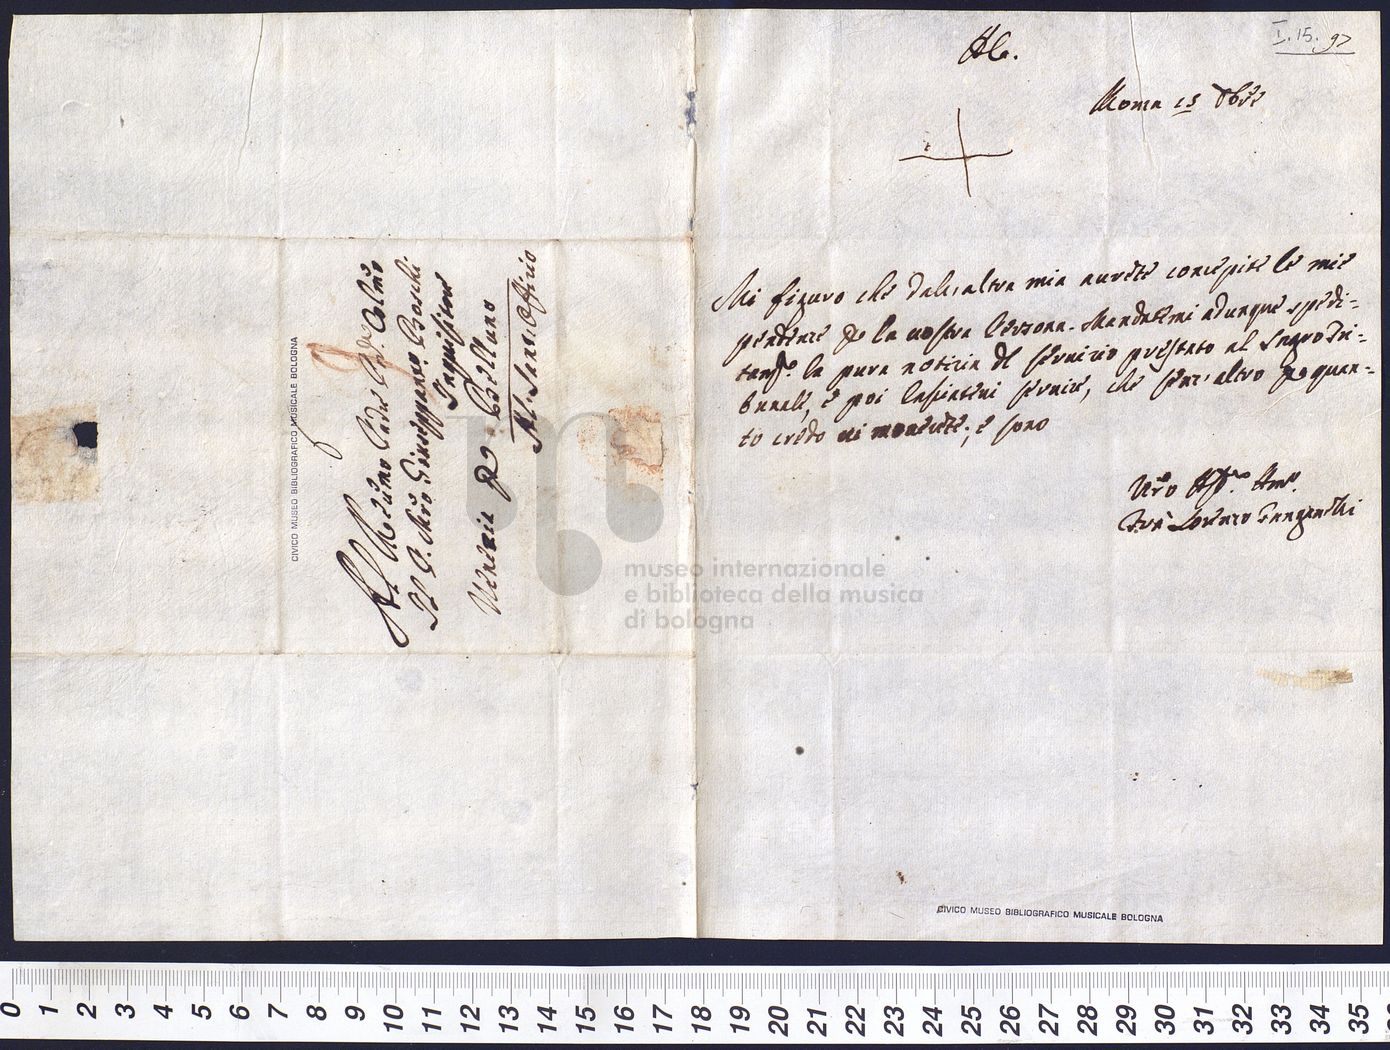 I. 15. 97
Al.
Roma 15
Mi figuro che dall'altra mia avrete concepite le mie
premure per la vostra Persona. Mandatemi adunque spedi-
tam.te la pura notizia del servizio prestato al Sagro Tri-
bunale, e poi lasciatevi servire, che senz'altro per quan-
to credo vi monerete; e sono
Vro Aff.mo Am.o
Fra Lorenzo Ganganelli
Al Padre
Il P. Mro Giuseppanto. Baschi
Inquisitore
Venezia per Belluno
Al Sant'Officio
CIVICO MUSEO BIBLIOGRAFICO MUSICALE BOLOGNA
museo internazionale
e biblioteca della musica
di bologna
CIVICO MUSEO BIBLIOGRAFICO MUSICALE BOLOGNA
0 1 2 3 4 5 6 7 8 9 10 11 12 13 14 15 16 17 18 19 20 21 22 23 24 25 26 27 28 29 30 31 32 33 34 35